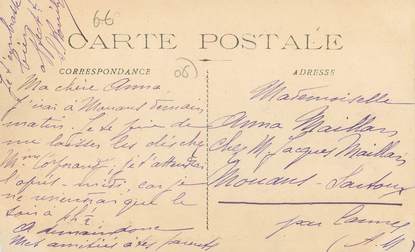 66
CARTE POSTALE
CORRESPONDANCE
ADRESSE
06
Ma chère Anna
J'irai à Mouans demain
matin, je te prie de
me laisser les
Mme je t'attendrai
l'après-midi, car je
ne reviendrai que le
soir à
A demain donc
Mes amitiés à tes parents
Je t'embrasse
bien
Mademoiselle
Anna Maillan
Chez Mr Jacques Maillan
Mouans-Sartoux
par Cannes
(A. M.)